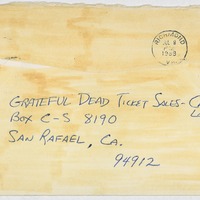 RICHMOND
1983
GRATEFUL DEAD TICKET SALES-
BOX C-S 8190
SAN RAFAEL, CA.
94912